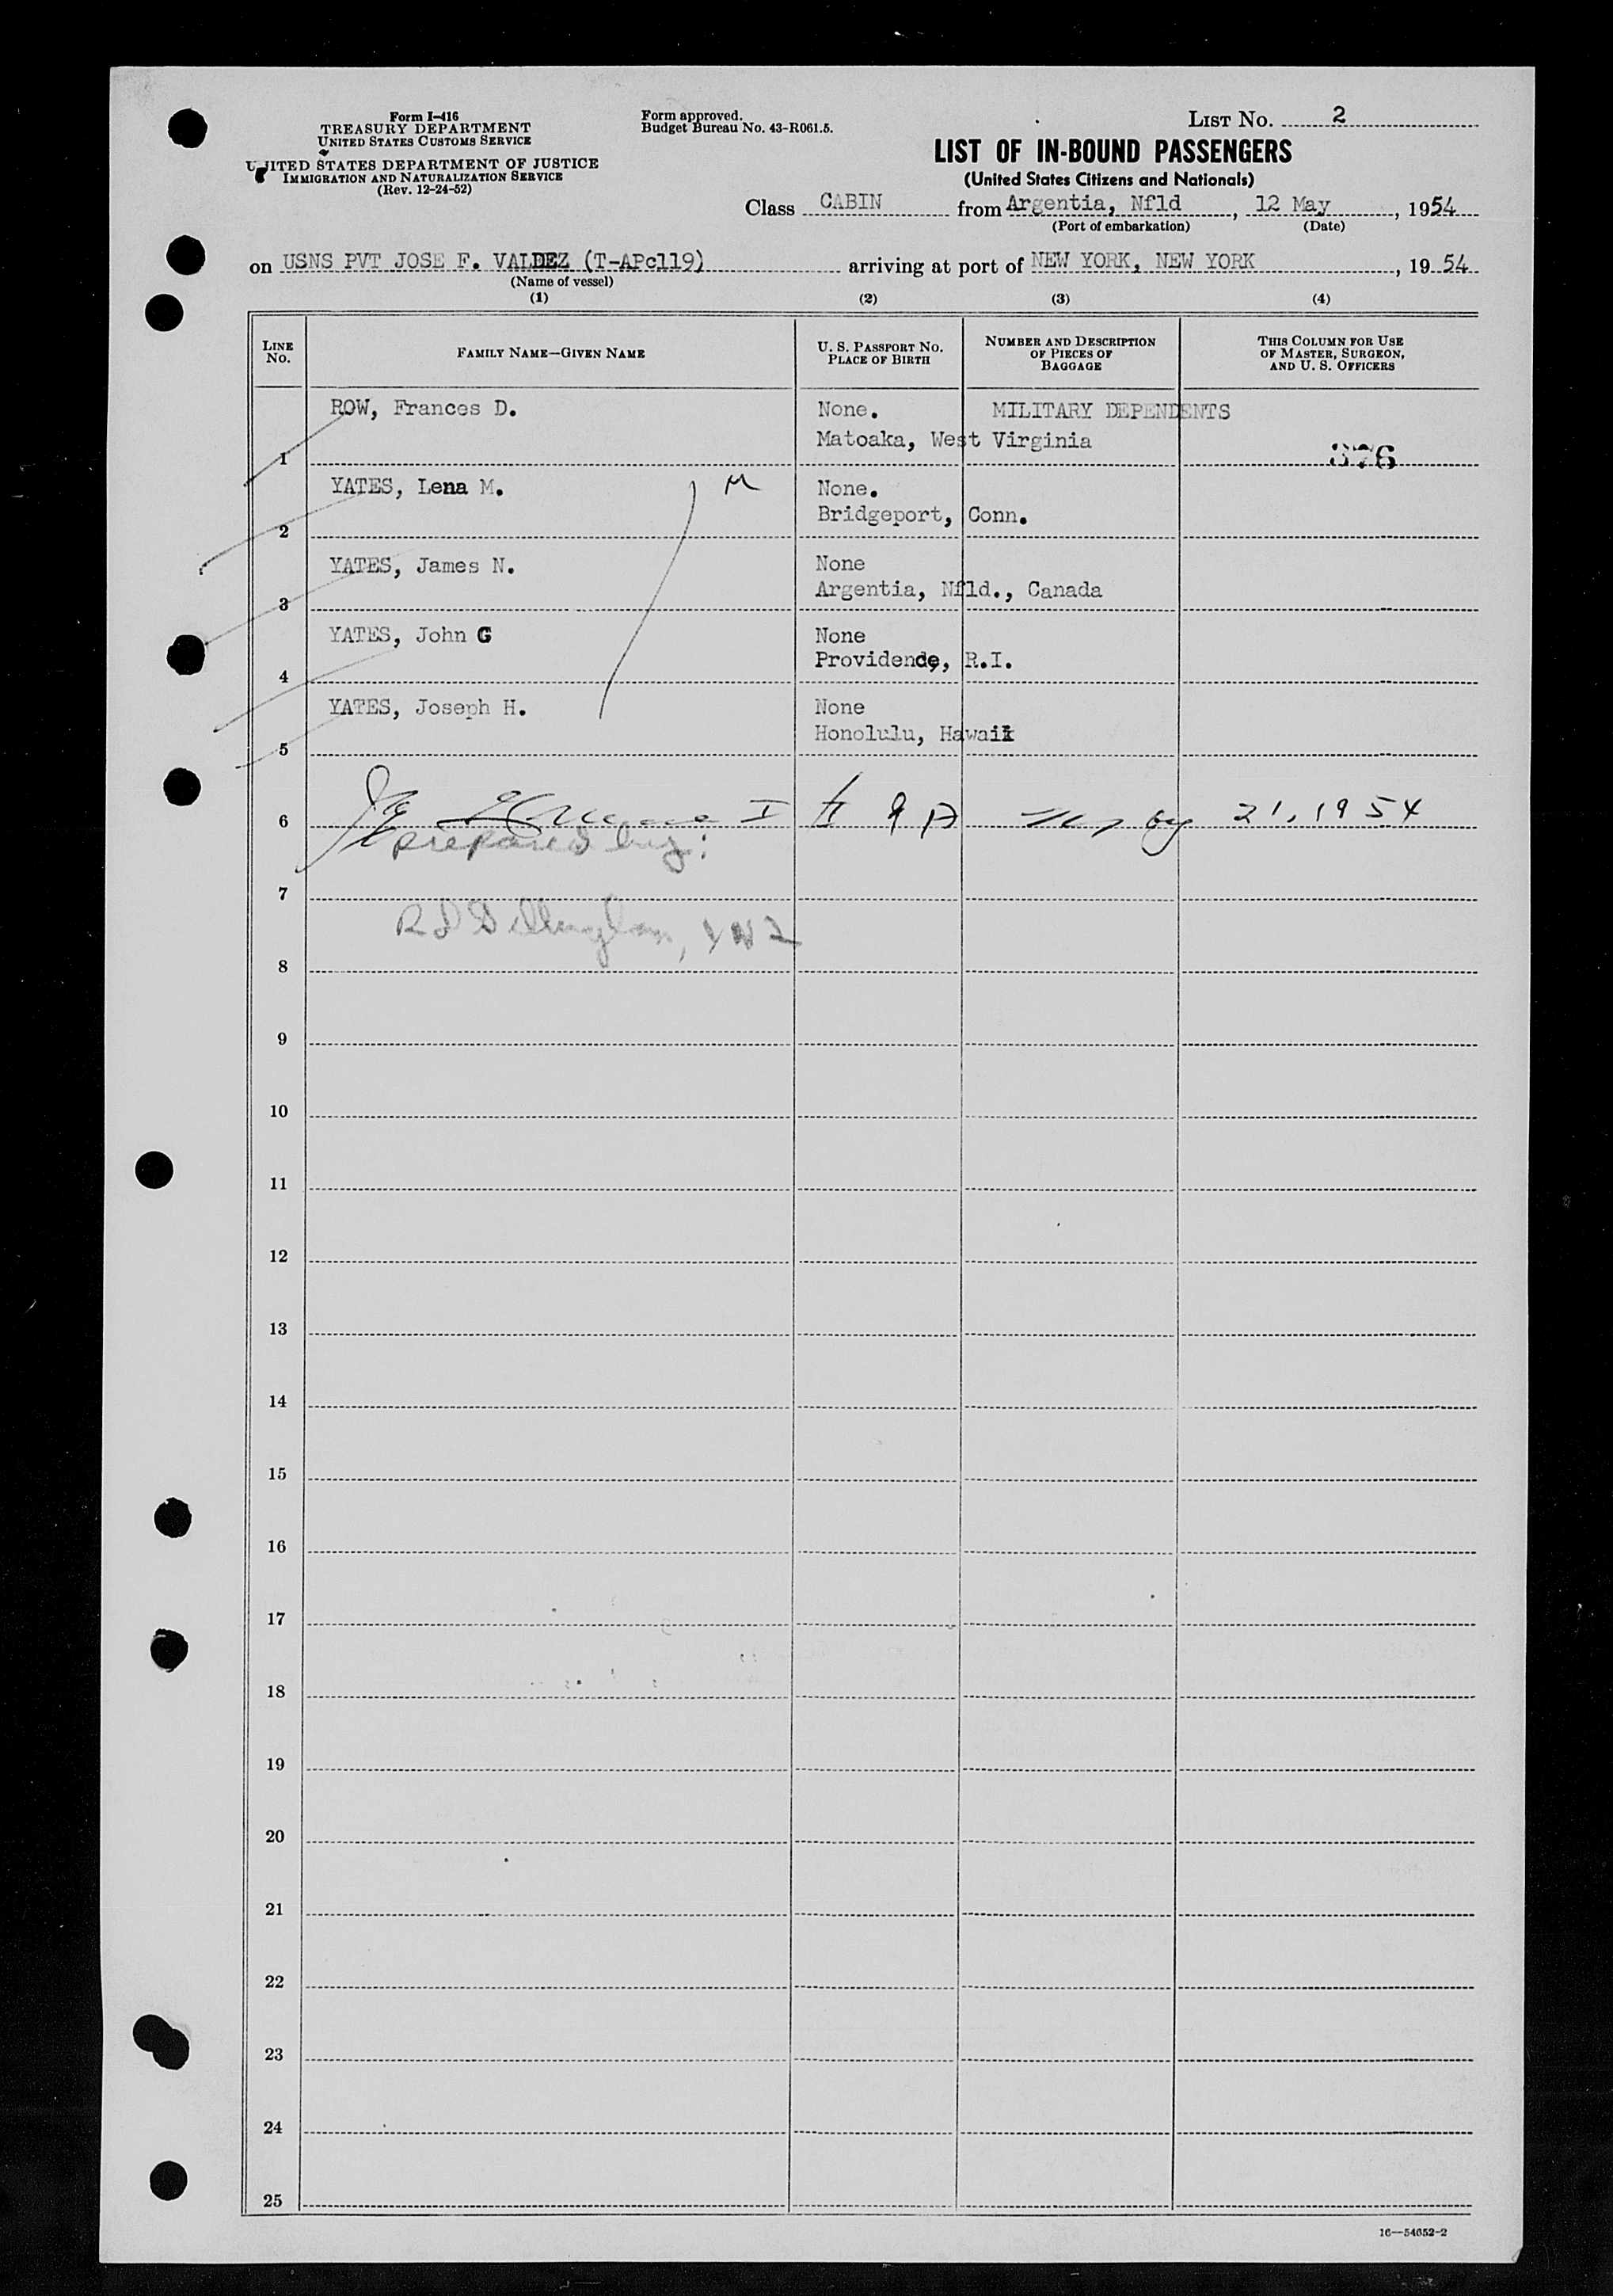 Form I-416
TREASURY DEPARTMENT
UNITED STATES CUSTOMS SERVICE
UNITED STATES DEPARTMENT OF JUSTICE
IMMIGRATION AND NATURALIZATION SERVICE
(Rev. 12-24-52)
Form approved.
Budget Bureau No. 43-R061.5.
LIST No. 2
LIST OF IN-BOUND PASSENGERS
(United States Citizens and Nationals)
Class CABIN from Argentia, Nfld, 12 May, 1954
(Port of embarkation) (Date)
on USNS PVT JOSE F. VALDEZ (T-APc119) arriving at port of NEW YORK, NEW YORK, 1954
(Name of vessel)
(1) (2) (3) (4)
LINE No. FAMILY NAME—GIVEN NAME U. S. PASSPORT NO. PLACE OF BIRTH NUMBER AND DESCRIPTION OF PIECES OF BAGGAGE THIS COLUMN FOR USE OF MASTER, SURGEON, AND U. S. OFFICERS
ROW, Frances D. None. MILITARY DEPENDENTS
Matoaka, West Virginia
1 376
YATES, Lena M. M None.
Bridgeport, Conn.
2
YATES, James N. None
Argentia, Nfld., Canada
3
YATES, John G None
Providence, R.I.
4
YATES, Joseph H. None
Honolulu, Hawaii
5
6 21, 1954
prepared by:
7
YN2
8
9
10
11
12
13
14
15
16
17
18
19
20
21
22
23
24
25
16—54652-2